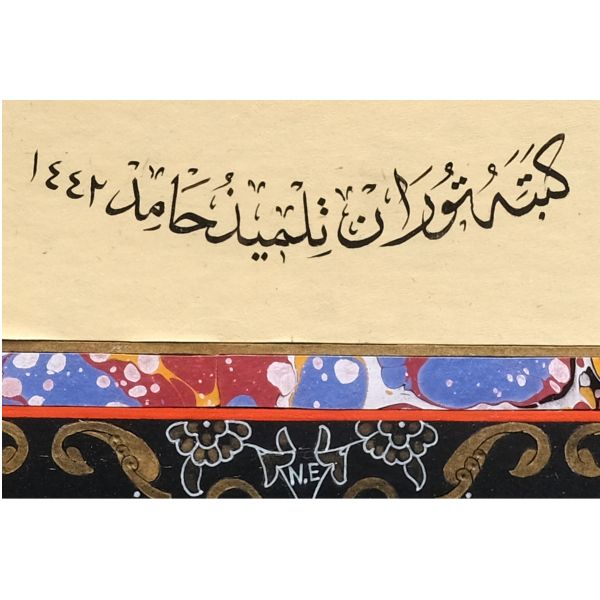 كَتَبَهُ تُورَان تِلْمِيذُ حَامِدْ ١٤٤٢
N.E